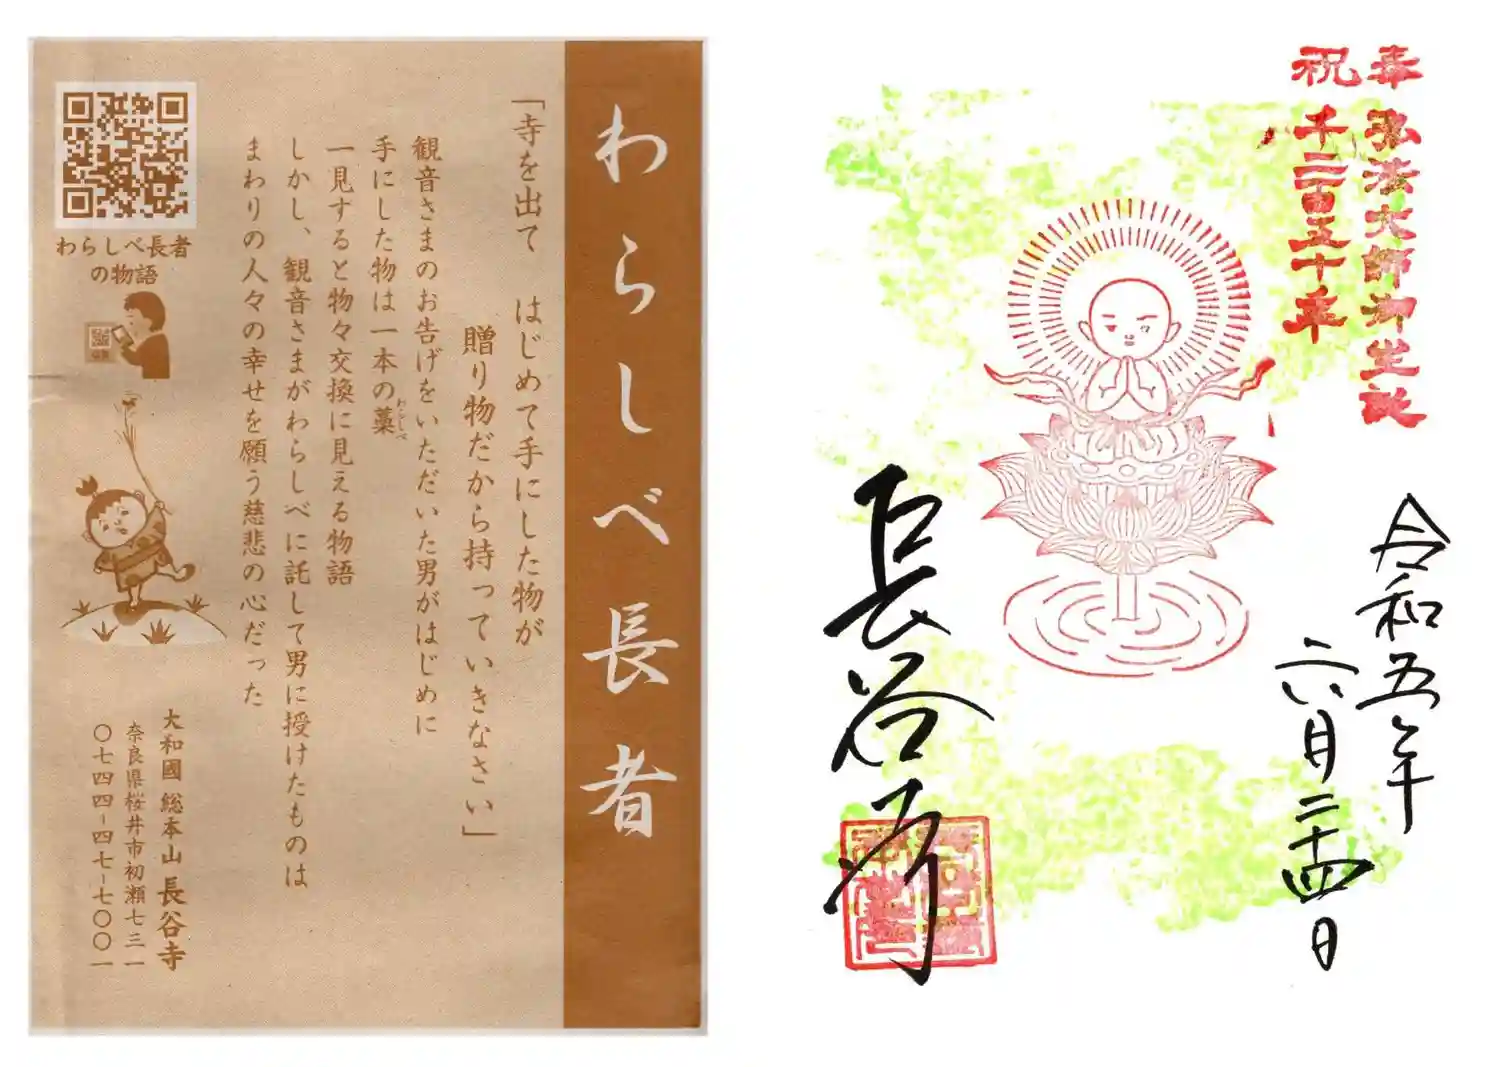 わらしべ長者
「寺を出て　はじめて手にした物が
贈り物だから持っていきなさい」
観音さまのお告げをいただいた男がはじめに
手にした物は一本の藁
わらしべ
一見すると物々交換に見える物語
しかし、観音さまがわらしべに託して男に授けたものは
まわりの人々の幸せを願う慈悲の心だった
わらしべ長者
の物語
大和國 総本山 長谷寺
奈良県桜井市初瀬七三一
〇七四四-四七-七〇〇一
奉祝
弘法大師御生誕
千二百五十年
令和五年
六月二十四日
長谷寺